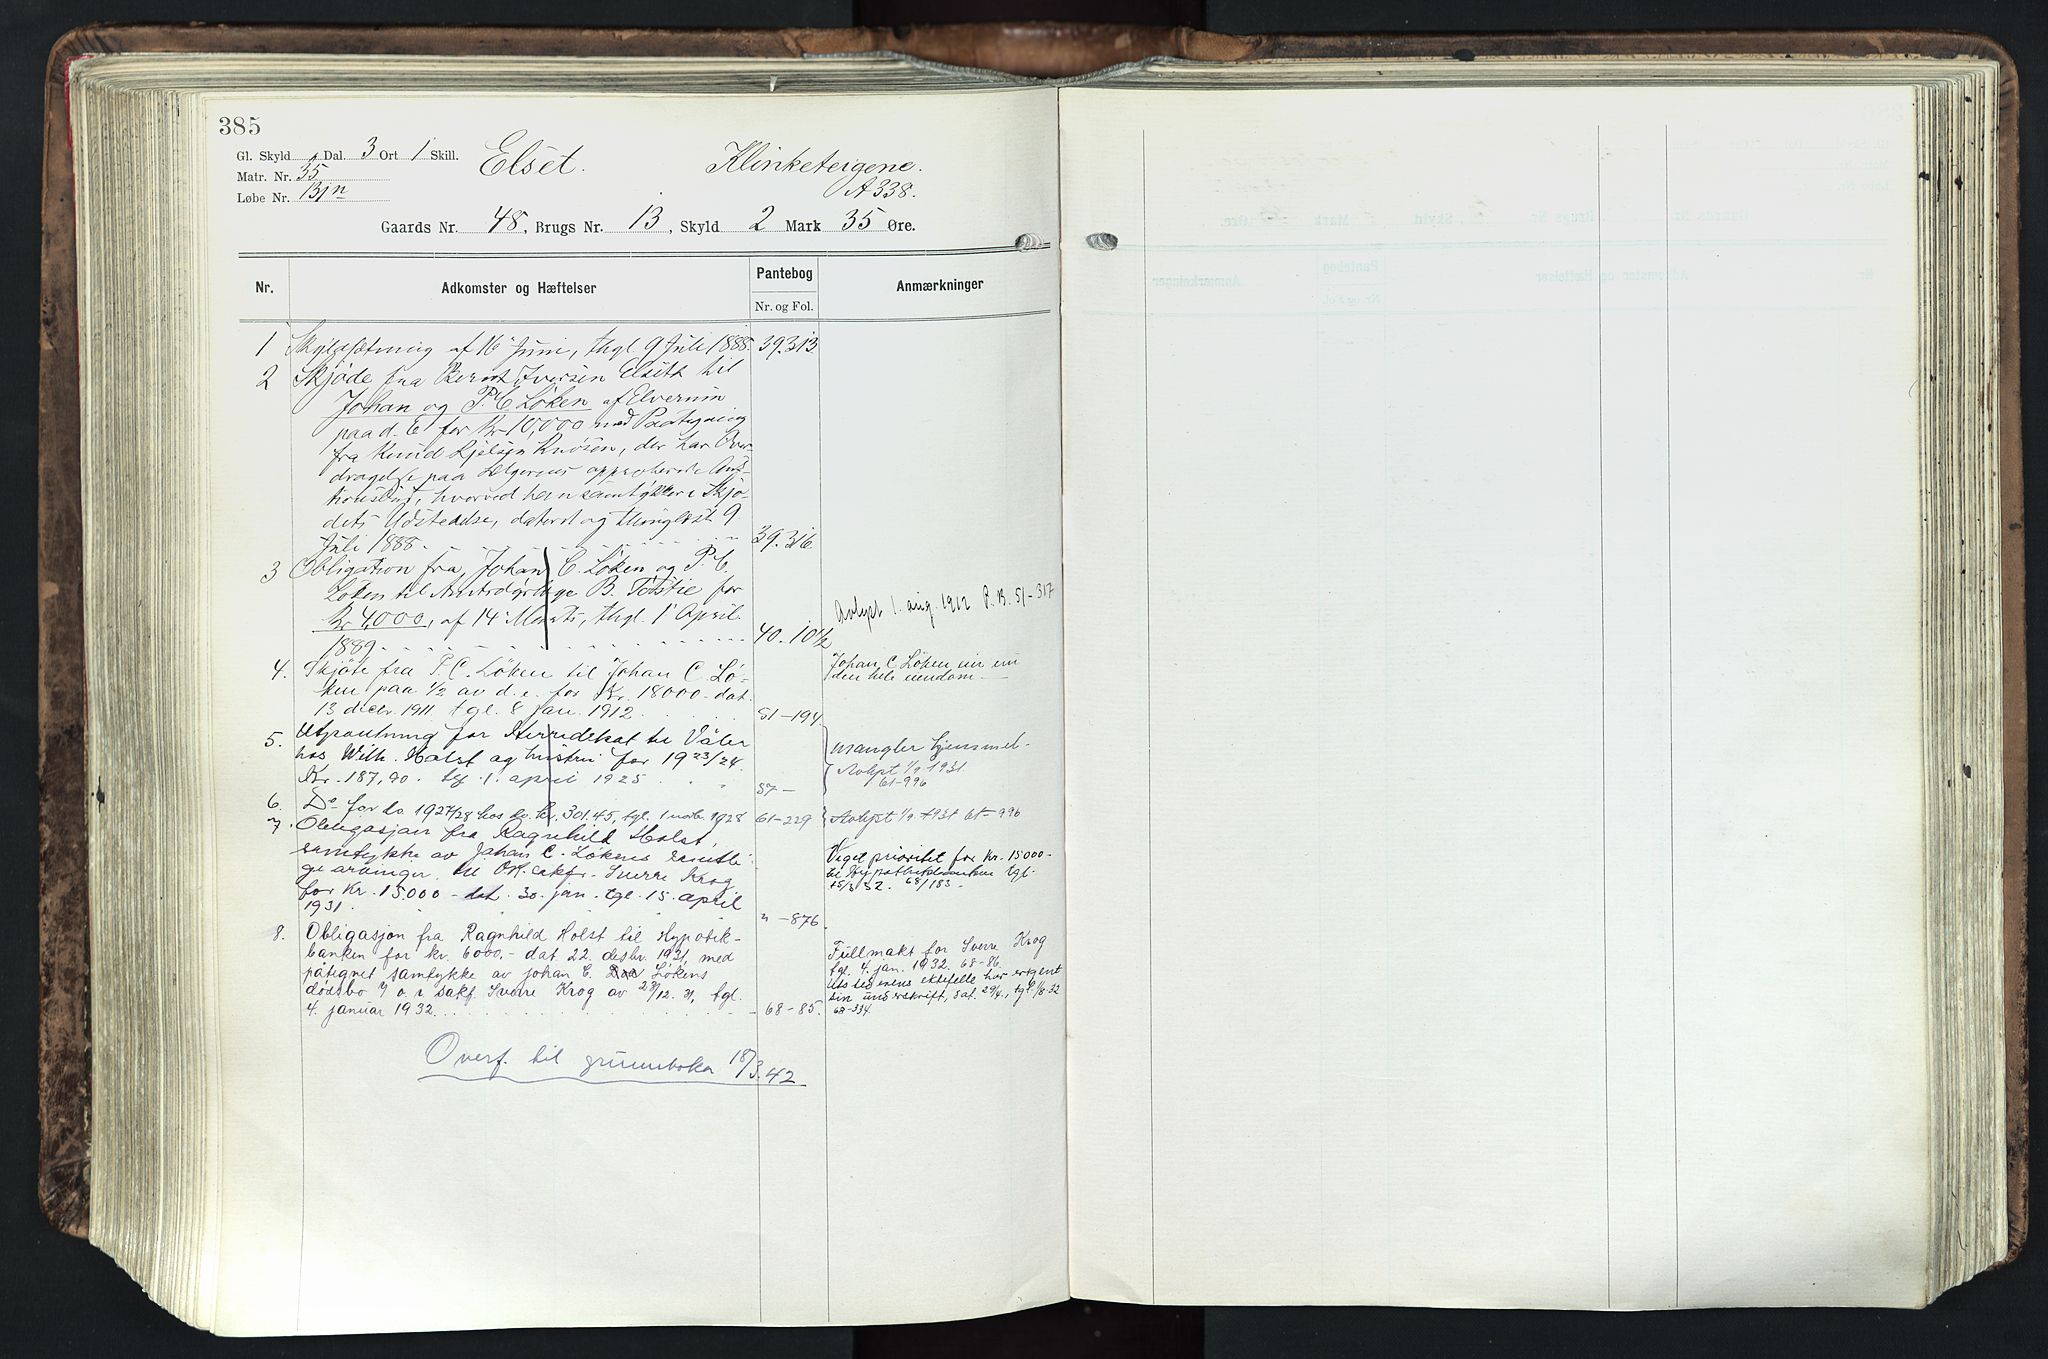 385
Gl. Skyld Dal. 3 Ort 1 Skill.
Elset. Klinketeigene.
Matr. Nr. 35
A 338.
Løbe Nr. 13jn
Gaards Nr. 48, Brugs Nr. 13, Skyld 2 Mark 35 Øre.
Nr. Adkomster og Hæftelser Pantebog Anmærkninger
Nr. og Fol.
1 Skyldsætning af 16 Juni, thgl. 9 Juli 1888. 39.313
2 Skjøde fra Bernt Iversen Elsett til
Johan og P. C. Løken af Elverum
paa d. E for Kr 10,000 med Paategning
fra Knud Kjelsen Knøsen, der har Over-
dragelse paa Sælgerens approberede Auk-
tionsbud, hvorved han samtykker i Skjø-
dets Udstedelse, dateret og thinglæst 9
Juli 1888. 39.316.
3 Obligation fra Johan C. Løken og P. C.
Løken til B. Tostie for
Kr 4,000, af 14 Marts, thgl. 1 April
1889. 40-104½
Avlyst 1. aug. 1912 P. B. 51-317
4. Skjøte fra P. C. Løken til Johan C. Lø-
ken paa 1/2 av d. e. for Kr. 18000- dat.
13 decbr. 1911. tgl. 8 jan. 1912. 51-194.
Johan C Løken eier nu
den hele eiendom.
5. Utpantning for Herredskat til Våler
hos Wilh. Holst og hustru for 1923/24.
Kr. 187,90. tgl. 1. april 1925 57-
mangler hjemmel.
Avlyst 1/9 1931.
61-996
6. Do for do 1927/28 hos do. Kr. 301.45, tgl. 1 novb. 1928 61-229 Avlyst 1/9 1931 61-996
7. Obligasjon fra Ragnhild Holst,
samtykke av Johan C. Løkens samtli-
ge arvinger, til O.R. sakf. Sverre Krog
for Kr. 15.000- dat. 30. jan. tgl. 15. april
1931. " -876.
Veget prioritet for kr. 15000-
til Hypotekbanken tgl.
15/3 32. 68/183-
8. Obligasjon fra Ragnhild Holst til Hypotek-
banken for kr. 6000.- dat. 22. desbr. 1931, med
påtegnet samtykke av Johan C. Løkens
dødsbo v/ o. r. sakf. Sverre Krog av 23/12. 31, tgl.
4. januar 1932. 68-85.
Fullmakt for Sverre Krog
tgl. 4. jan. 1932. 68-86
Utstederens ektefelle har erkjent
sin underskrift, dat. 29/4., tgl. 1/8-32
68-334.
Overf. til grunnboka 18/3.42